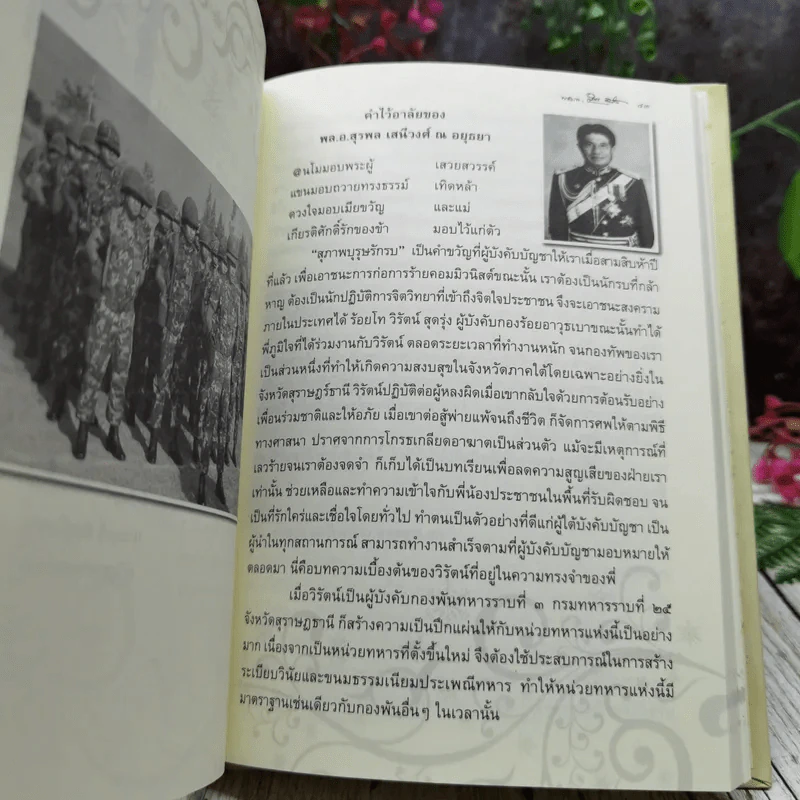 ๔๓
คำไว้อาลัยของ
พล.อ.สุรพล เสนีวงศ์ ณ อยุธยา
@นโมมอบพระผู้ เสวยสวรรค์
แขนมอบถวายทรงธรรม์ เทิดหล้า
ดวงใจมอบเมียขวัญ และแม่
เกียรติศักดิ์รักของข้า มอบไว้แก่ตัว
"สุภาพบุรุษรักรบ" เป็นคำขวัญที่ผู้บังคับบัญชาให้เราเมื่อสามสิบห้าปี
ที่แล้ว เพื่อเอาชนะการก่อการร้ายคอมมิวนิสต์ขณะนั้น เราต้องเป็นนักรบที่กล้า
หาญ ต้องเป็นนักปฏิบัติการจิตวิทยาที่เข้าถึงจิตใจประชาชน จึงจะเอาชนะสงคราม
ภายในประเทศได้ ร้อยโท วิรัตน์ สุดรุ่ง ผู้บังคับกองร้อยอาวุธเบาขณะนั้นทำได้
พี่ภูมิใจที่ได้ร่วมงานกับวิรัตน์ ตลอดระยะเวลาที่ทำงานหนัก จนกองทัพของเรา
เป็นส่วนหนึ่งที่ทำให้เกิดความสงบสุขในจังหวัดภาคใต้โดยเฉพาะอย่างยิ่งใน
จังหวัดสุราษฎร์ธานี วิรัตน์ปฏิบัติต่อผู้หลงผิดเมื่อเขากลับใจด้วยการต้อนรับอย่าง
เพื่อนร่วมชาติและให้อภัย เมื่อเขาต่อสู้พ่ายแพ้จนถึงชีวิต ก็จัดการศพให้ตามพิธี
ทางศาสนา ปราศจากการโกรธเกลียดอาฆาตเป็นส่วนตัว แม้จะมีเหตุการณ์ที่
เลวร้ายจนเราต้องจดจำ ก็เก็บได้เป็นบทเรียนเพื่อลดความสูญเสียของฝ่ายเรา
เท่านั้น ช่วยเหลือและทำความเข้าใจกับพี่น้องประชาชนในพื้นที่รับผิดชอบ จน
เป็นที่รักใคร่และเชื่อใจโดยทั่วไป ทำตนเป็นตัวอย่างที่ดีแก่ผู้ใต้บังคับบัญชา เป็น
ผู้นำในทุกสถานการณ์ สามารถทำงานสำเร็จตามที่ผู้บังคับบัญชามอบหมายให้
ตลอดมา นี่คือบทความเบื้องต้นของวิรัตน์ที่อยู่ในความทรงจำของพี่
เมื่อวิรัตน์เป็นผู้บังคับกองพันทหารราบที่ ๓ กรมทหารราบที่ ๒๕
จังหวัดสุราษฎธานี ก็สร้างความเป็นปึกแผ่นให้กับหน่วยทหารแห่งนี้เป็นอย่าง
มาก เนื่องจากเป็นหน่วยทหารที่ตั้งขึ้นใหม่ จึงต้องใช้ประสบการณ์ในการสร้าง
ระเบียบวินัยและขนมธรรมเนียมประเพณีทหาร ทำให้หน่วยทหารแห่งนี้มี
มาตราฐานเช่นเดียวกับกองพันอื่นๆ ในเวลานั้น